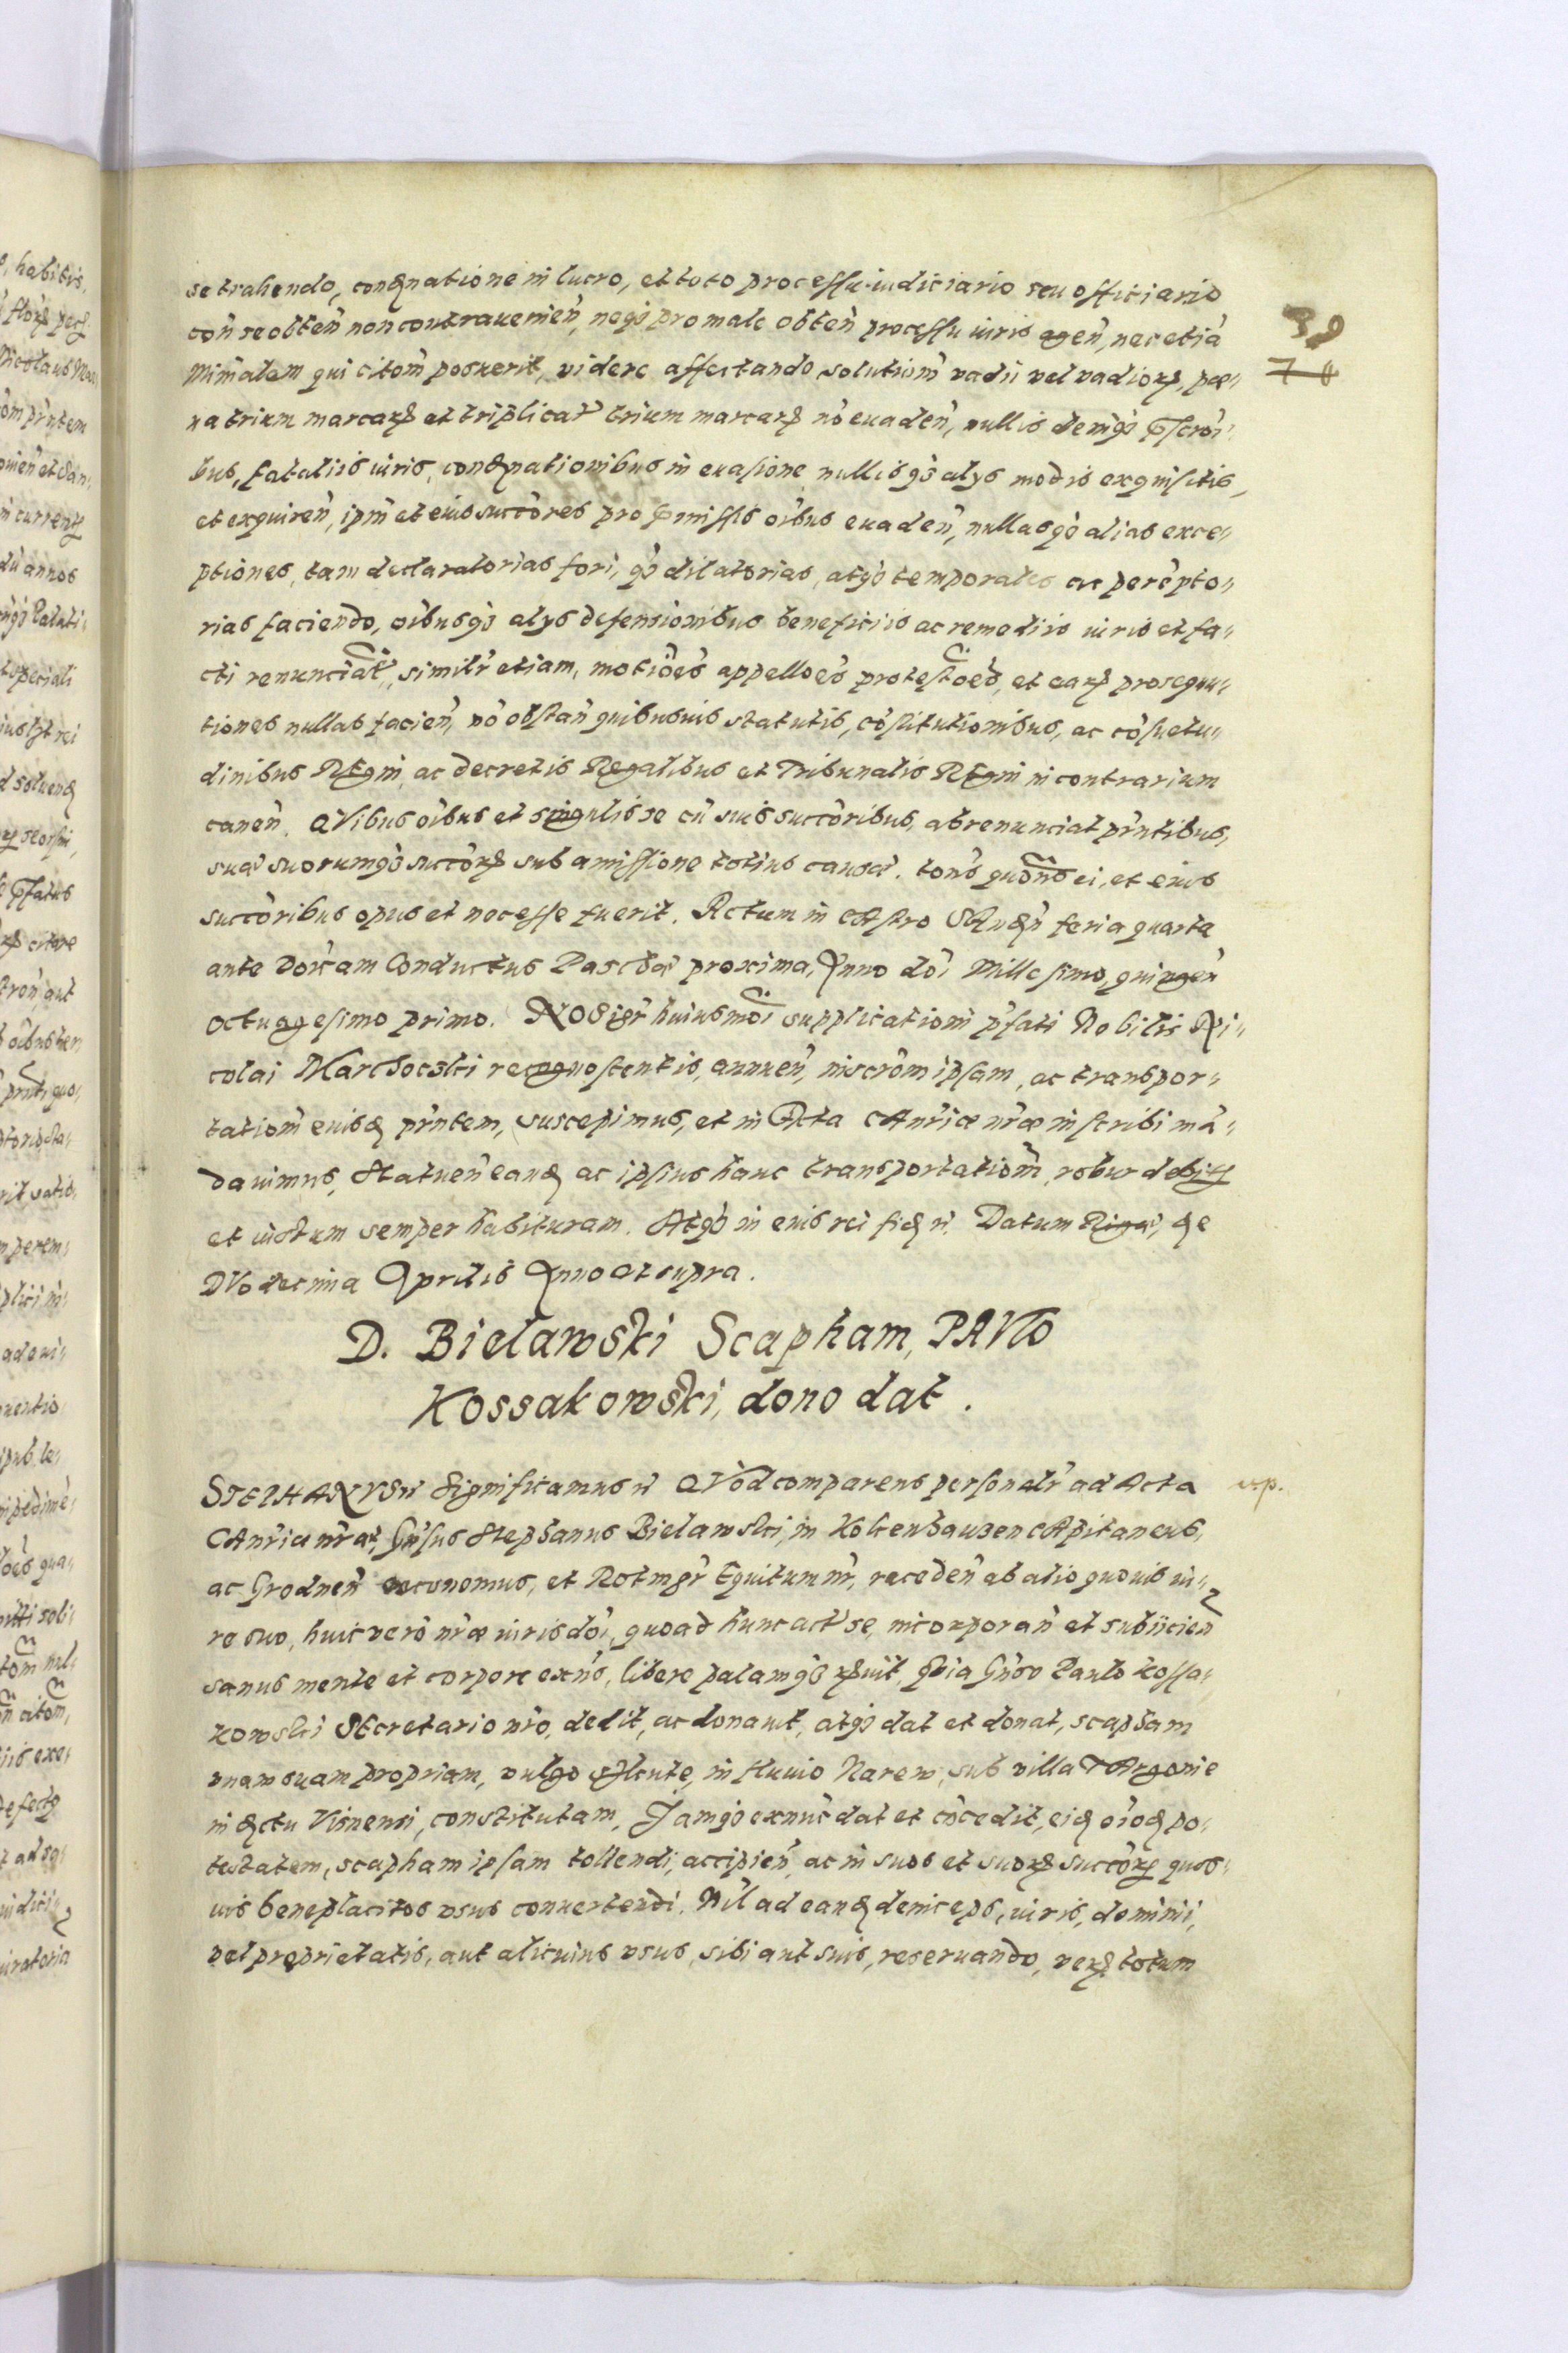 se trahendo, condnatione in lucro, et toto processu iudiciario seu officiario
con se obten non contrauenien, neq3 pro male obten processu iuris agen, nec etia
Minialem qui citom posuerit, videre affectando, solutiom vadii vel vadior, poe-
na trium marcar et triplicat trium marcar no euaden, nullis deniq3 pscroi-
bus, fataliis iuris, condnationibus in euasione nullisq3 alys modis exquisitis,
et exquiren, ipm et eius succores pro pmissis oibus euaden, nullasq3 alias exce-
ptiones, tam declaratorias fori, q3 dilatorias, atq3 temporales ac perepto-
rias faciendo, oibusq3 alys defensionibus beneficiis ac remediis iuris et fa-
cti renunciat, similr etiam, motioes appelloes protestoes, et ear prosequu-
tiones nullas facien, no obstan quibusuis statutis, costitutionibus, ac cosuetu-
dinibus REgni, ac decretis Regalibus et Tribunalis REgni in contrarium
canen. QVibus oibus et singulis se cu suis succoribus, abrenunciat prntibus,
sua suorumq3 succor sub amissione totius causae. tons quons ei, et eius
succoribus opus et necesse fuerit. Actum in cAstro VAnden feria quarta
ante Doicam Conductus Paschae proxima, Anno doi Millesimo, quingen
octuagesimo primo. NOS igr huiusmoi supplicationi pfati Nobilis Ni-
colai Marchocski recognoscentis, annuen, inscrom ipsam, ac transpor-
tatiom eiusd prntem, suscepimus, et in Acta cAnriae nrae inscribi ma-
dauimus, Statuen eand ac ipsius hanc transportatiom, robur debit
et iustum semper habituram. Atq3 in eius rei fid n. Datum Rigae, de
DVodecima Aprilis Anno Vt supra.
D. Bielawski Scapham, PAVlo
Kossakowski, dono dat.
STEPHANVS n Significamus n QVod comparens personalr ad Acta
CAnriae nrae, Gnsus Stephanus Bielawski, in Kokenhauzen cApitaneus,
ac Grodnen oeconomus, et Rotmgr Equitum nr, receden ab alio quouis iu-
re suo, huic vero nrae iurisdoi, quoad hunc act se incorporan et subiicien
sanus mente et corpore exns, libere palamq3 rcuit, Quia Gnso Paulo Kossa-
kowski SEcretario nro, dedit, ac donauit, atq3 dat et donat, scapham
vnam suam propriam, vulgo Szkute, in fluuio Narew, sub villa TArgonie
in dctu Visnensi, constitutam, Jamq3 exnuc dat et cocedit, eid oiod po-
testatem, scapham ipsam tollendi, accipien, ac in suos et suor succor quos-
uis beneplacitos vsus conuertendi. Nil ad eand deinceps, iuris, dominii,
vel proprietatis, aut alicuius vsus, sibi aut suis, reseruando, ver totum
39
78
v.p.